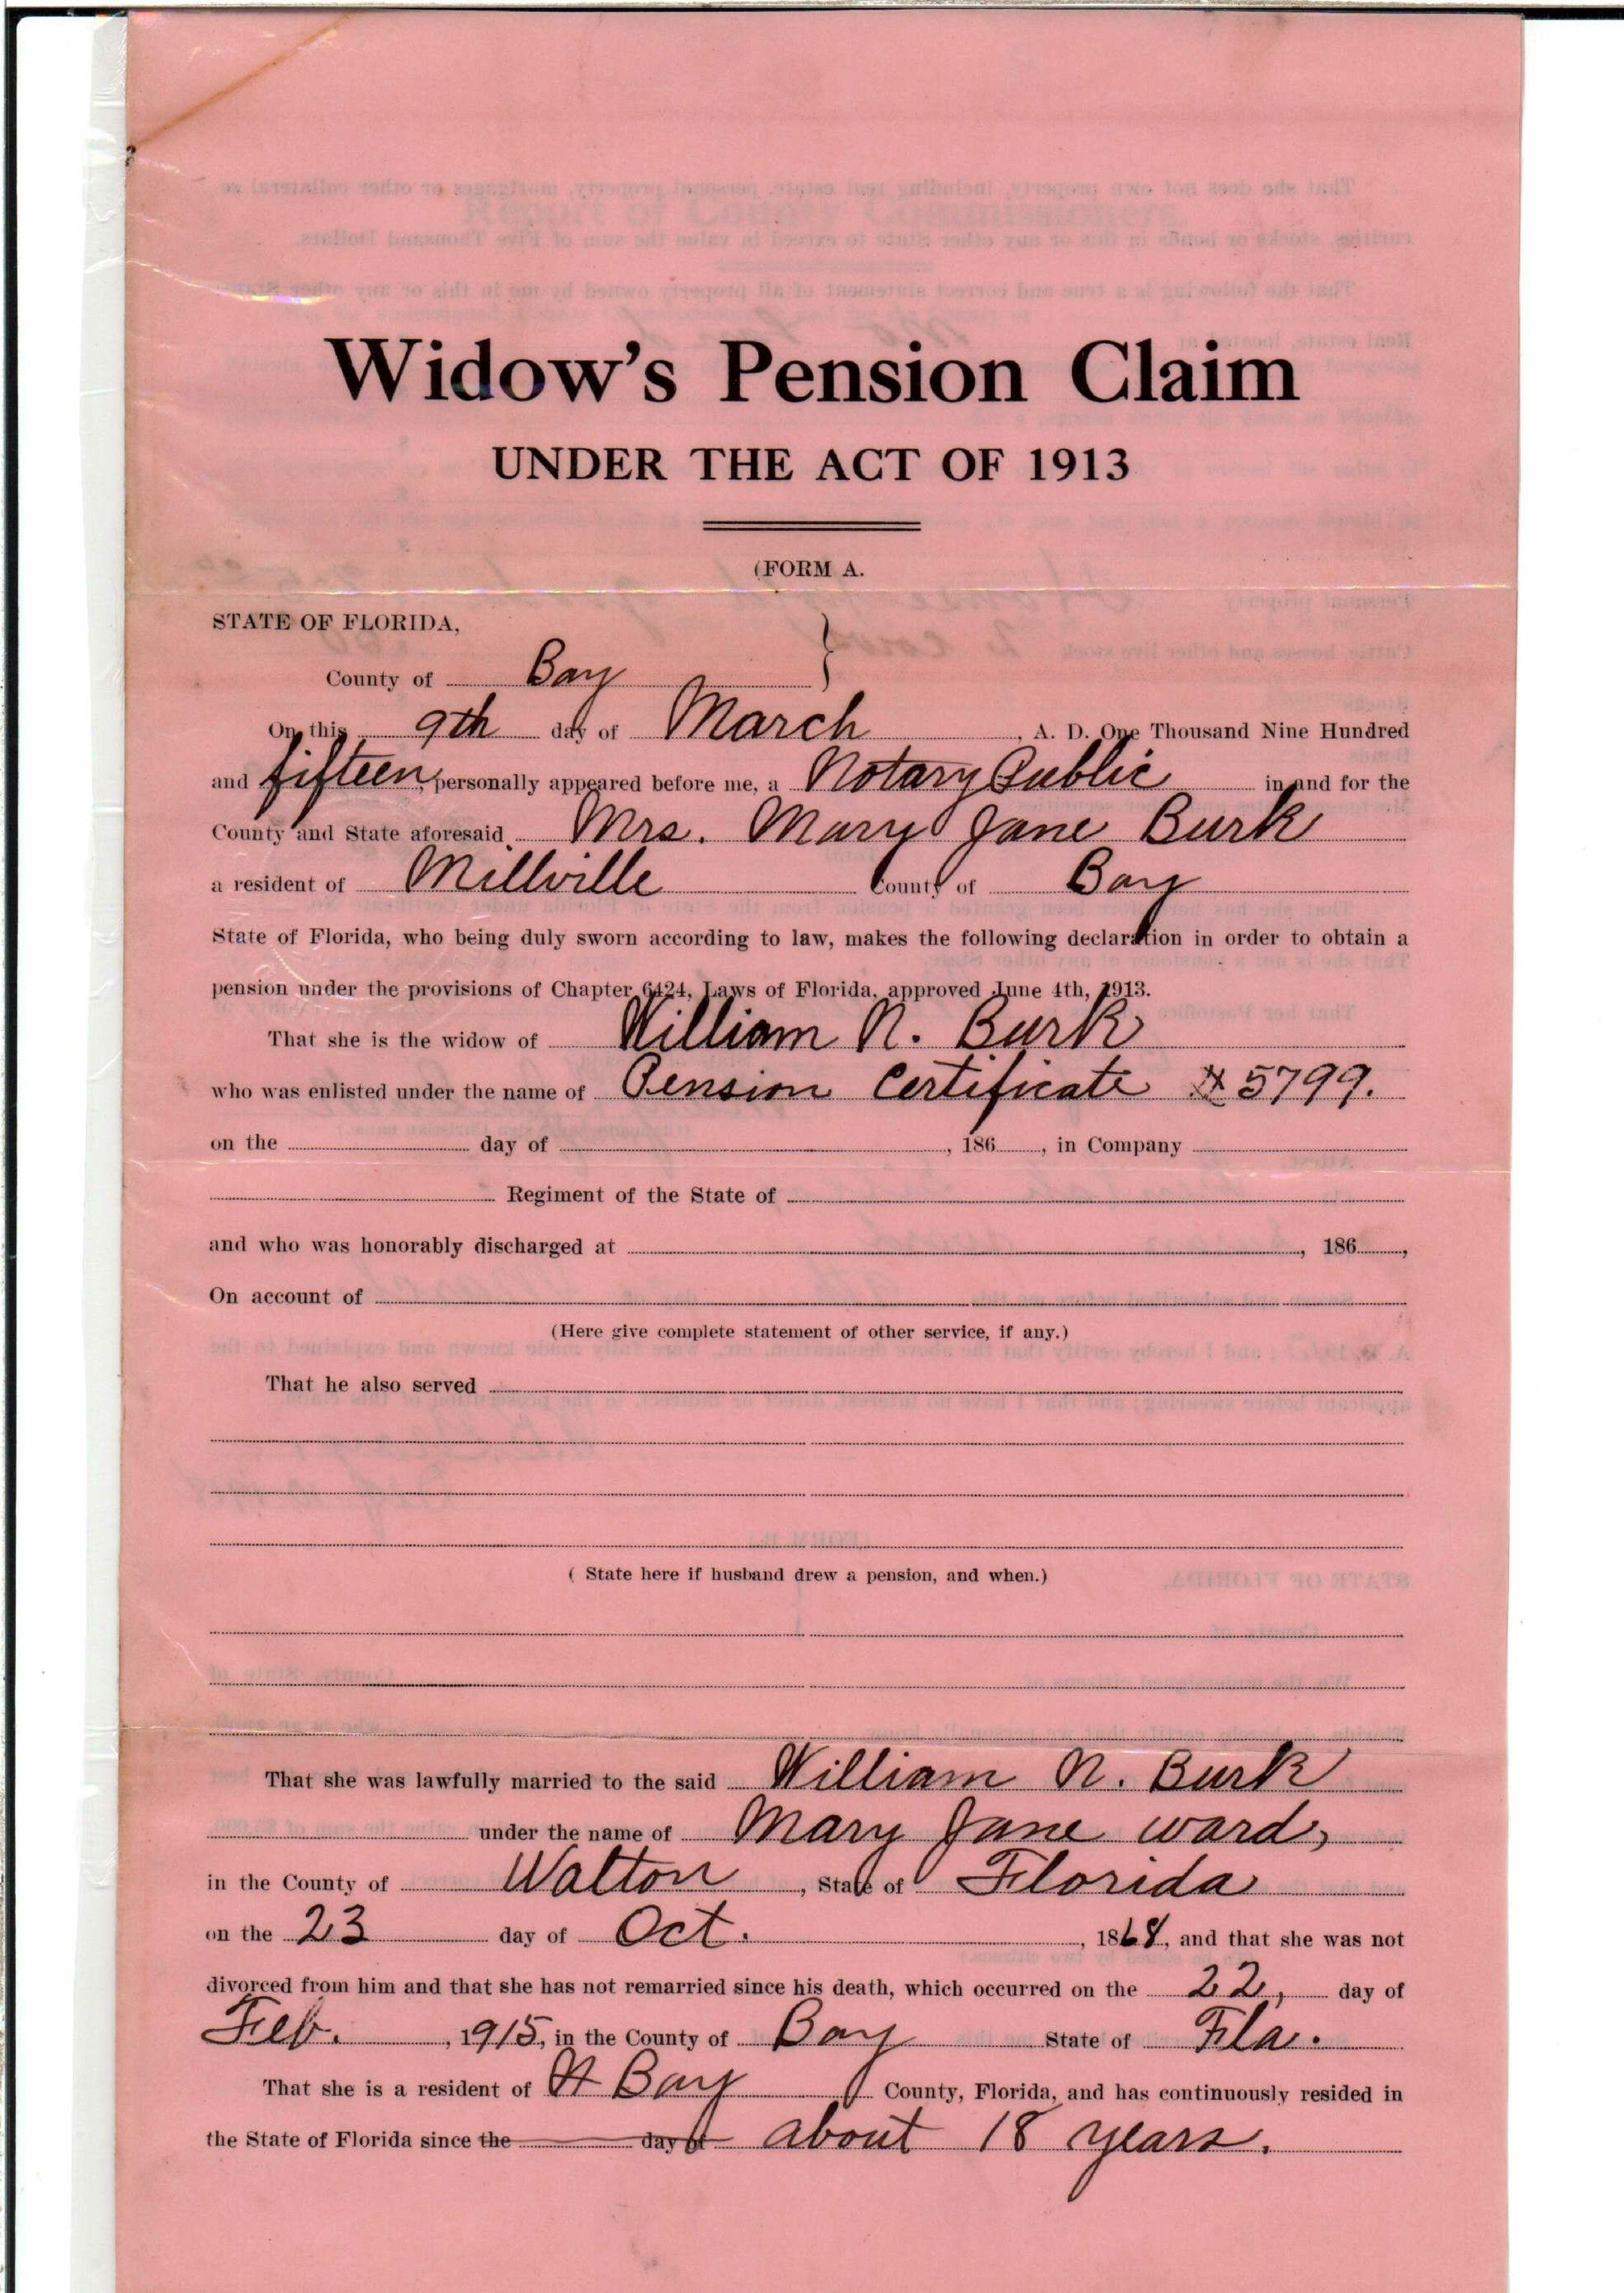 Widow's Pension Claim
UNDER THE ACT OF 1913
(FORM A.
STATE OF FLORIDA,
County of Bay }
On this 9th day of March, A. D. One Thousand Nine Hundred
and fifteen, personally appeared before me, a Notary Public in and for the
County and State aforesaid Mrs. Mary Jane Burk
a resident of Millville County of Bay
State of Florida, who being duly sworn according to law, makes the following declaration in order to obtain a
pension under the provisions of Chapter 6424, Laws of Florida, approved June 4th, 1913.
That she is the widow of William N. Burk
who was enlisted under the name of Pension Certificate # 5799.
on the day of , 186 , in Company
Regiment of the State of
and who was honorably discharged at , 186 ,
On account of
(Here give complete statement of other service, if any.)
That he also served
( State here if husband drew a pension, and when.)
That she was lawfully married to the said William N. Burk
under the name of Mary Jane Ward,
in the County of Walton, State of Florida
on the 23 day of Oct. , 1868, and that she was not
divorced from him and that she has not remarried since his death, which occurred on the 22, day of
Feb. , 1915, in the County of Bay State of Fla.
That she is a resident of Bay County, Florida, and has continuously resided in
the State of Florida since the day of about 18 years.